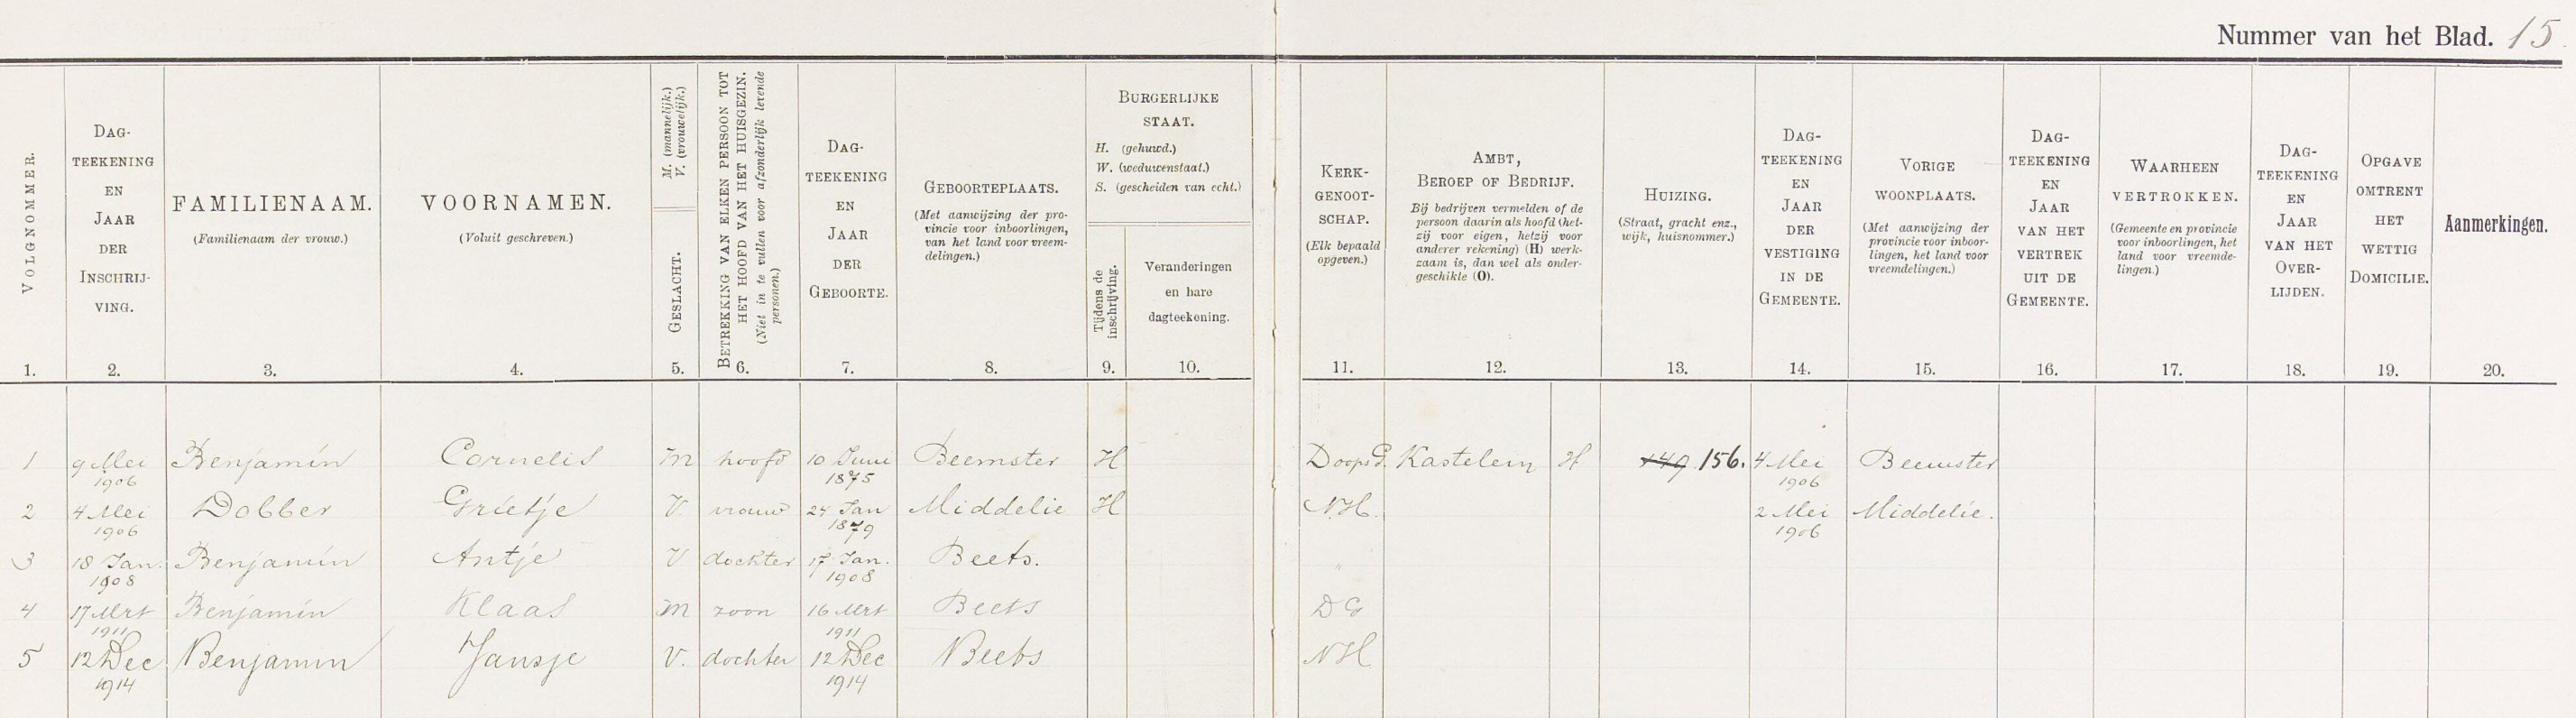 Nummer van het Blad. 15
VOLGNOMMER.
1.
DAG-
TEEKENING
EN
JAAR
DER
INSCHRIJ-
VING.
2.
FAMILIENAAM.
(Familienaam der vrouw.)
3.
VOORNAMEN.
(Voluit geschreven.)
4.
M. (mannelijk.)
V. (vrouwelijk.)
GESLACHT.
5.
BETREKKING VAN ELKEN PERSOON TOT
HET HOOFD VAN HET HUISGEZIN.
(Niet in te vullen voor afzonderlijk levende
personen.)
6.
DAG-
TEEKENING
EN
JAAR
DER
GEBOORTE.
7.
GEBOORTEPLAATS.
(Met aanwijzing der pro-
vincie voor inboorlingen,
van het land voor vreem-
delingen.)
8.
BURGERLIJKE
STAAT.
H. (gehuwd.)
W. (weduwenstaat.)
S. (gescheiden van echt.)
Tijdens de
inschrijving.
9.
Veranderingen
en hare
dagteekening.
10.
KERK-
GENOOT-
SCHAP.
(Elk bepaald
opgeven.)
11.
AMBT,
BEROEP OF BEDRIJF.
Bij bedrijven vermelden of de
persoon daarin als hoofd (het-
zij voor eigen, hetzij voor
anderer rekening) (H) werk-
zaam is, dan wel als onder-
geschikte (O).
12.
HUIZING.
(Straat, gracht enz.,
wijk, huisnommer.)
13.
DAG-
TEEKENING
EN
JAAR
DER
VESTIGING
IN DE
GEMEENTE.
14.
VORIGE
WOONPLAATS.
(Met aanwijzing der
provincie voor inboor-
lingen, het land voor
vreemdelingen.)
15.
DAG-
TEEKENING
EN
JAAR
VAN HET
VERTREK
UIT DE
GEMEENTE.
16.
WAARHEEN
VERTROKKEN.
(Gemeente en provincie
voor inboorlingen, het
land voor vreemde-
lingen.)
17.
DAG-
TEEKENING
EN
JAAR
VAN HET
OVER-
LIJDEN.
18.
OPGAVE
OMTRENT
HET
WETTIG
DOMICILIE.
19.
Aanmerkingen.
20.
1 9 Mei 1906 Benjamin Cornelis M hoofd 10 Juni 1875 Beemster H DoopsG. Kastelein H 149 156. 4 Mei 1906 Beemster
2 4 Mei 1906 Dobber Grietje V vrouw 24 Jan 1879 Middelie H N.H. 2 Mei 1906 Middelie.
3 18 Jan. 1908 Benjamin Antje V dochter 17 Jan. 1908 Beets. "
4 17 Mrt 1911 Benjamin Klaas M zoon 16 Mrt 1911 Beets DG
5 12 Dec 1914 Benjamin Jansje V. dochter 12 Dec 1914 Beets NH